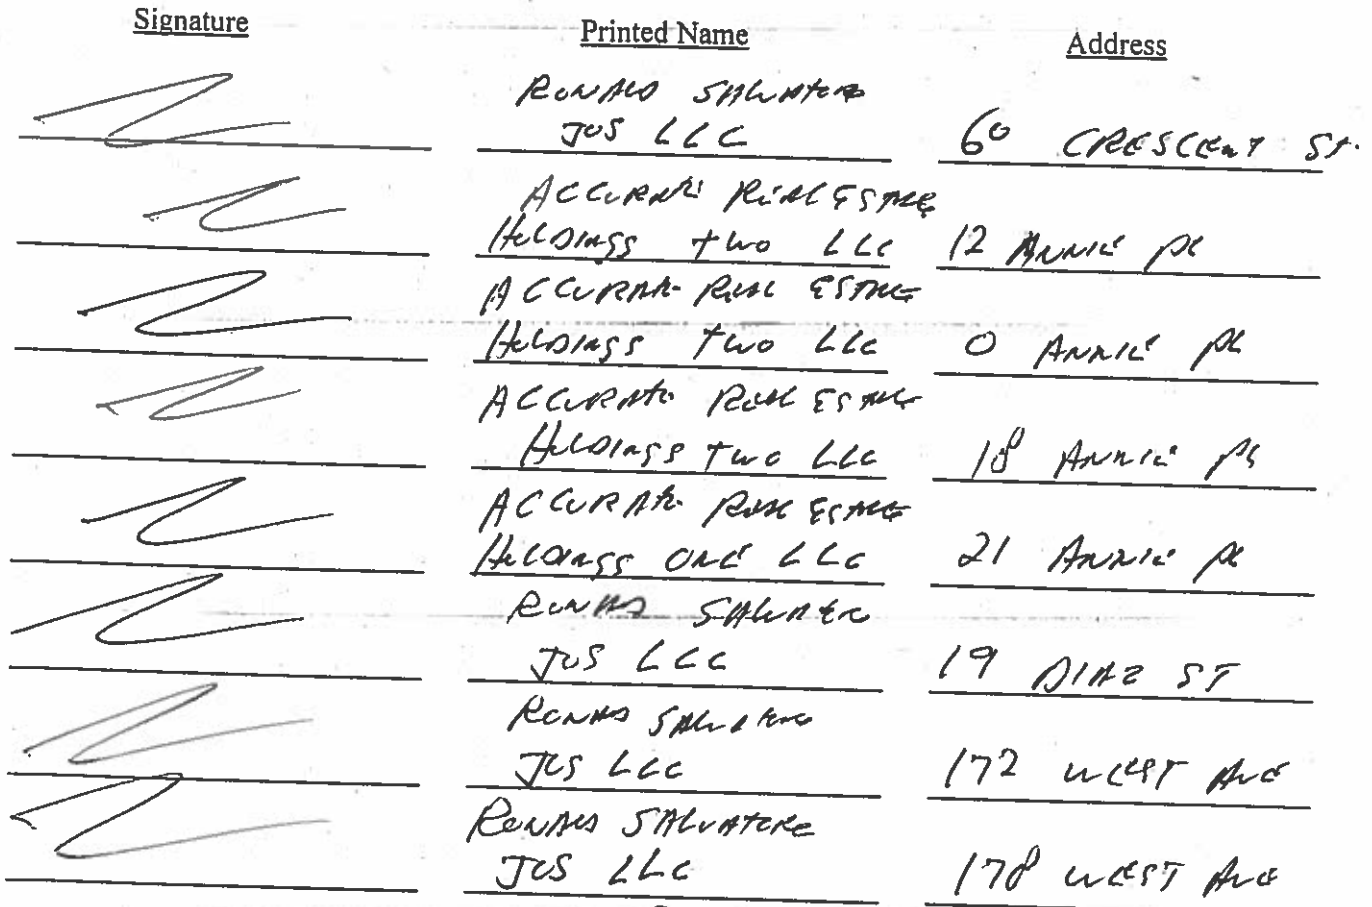 Signature Printed Name Address
RONALD SALVATORE
JOS LLC 60 CRESCENT ST.
ACCURATE REAL ESTATE
HOLDINGS TWO LLC 12 ANNIE PL
ACCURATE REAL ESTATE
HOLDINGS TWO LLC 0 ANNIE PL
ACCURATE REAL ESTATE
HOLDINGS TWO LLC 18 ANNIE PL
ACCURATE REAL ESTATE
HOLDINGS ONE LLC 21 ANNIE PL
RONALD SALVATORE
JOS LLC 19 DIAZ ST
RONALD SALVATORE
JOS LLC 172 WEST AVE
RONALD SALVATORE
JOS LLC 178 WEST AVE